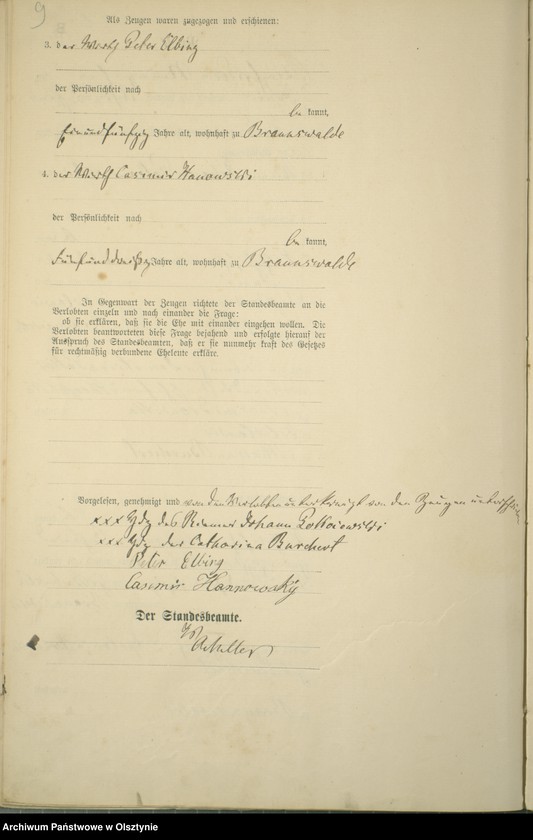 9
Als Zeugen waren zugezogen und erschienen:
3. der Wirth Peter Elbing
der Persönlichkeit nach
be kannt,
Einundfünfzig Jahre alt, wohnhaft zu Braunswalde
4. der Wirth Casimir Hanowski
der Persönlichkeit nach
be kannt,
Fünfunddreißig Jahre alt, wohnhaft zu Braunswalde
In Gegenwart der Zeugen richtete der Standesbeamte an die
Verlobten einzeln und nach einander die Frage:
ob sie erklären, daß sie die Ehe mit einander eingehen wollen. Die
Verlobten beantworteten diese Frage bejahend und erfolgte hierauf der
Ausspruch des Standesbeamten, daß er sie nunmehr kraft des Gesetzes
für rechtmäßig verbundene Eheleute erkläre.
Vorgelesen, genehmigt und von den Verlobten unterkreuzt von den Zeugen unterschrieben
xxx Hdz des Johann
xxx Hdz der Catharina Burchert
Peter Elbing
Casimir Hannowsky
Der Standesbeamte.
Archiwum Państwowe w Olsztynie